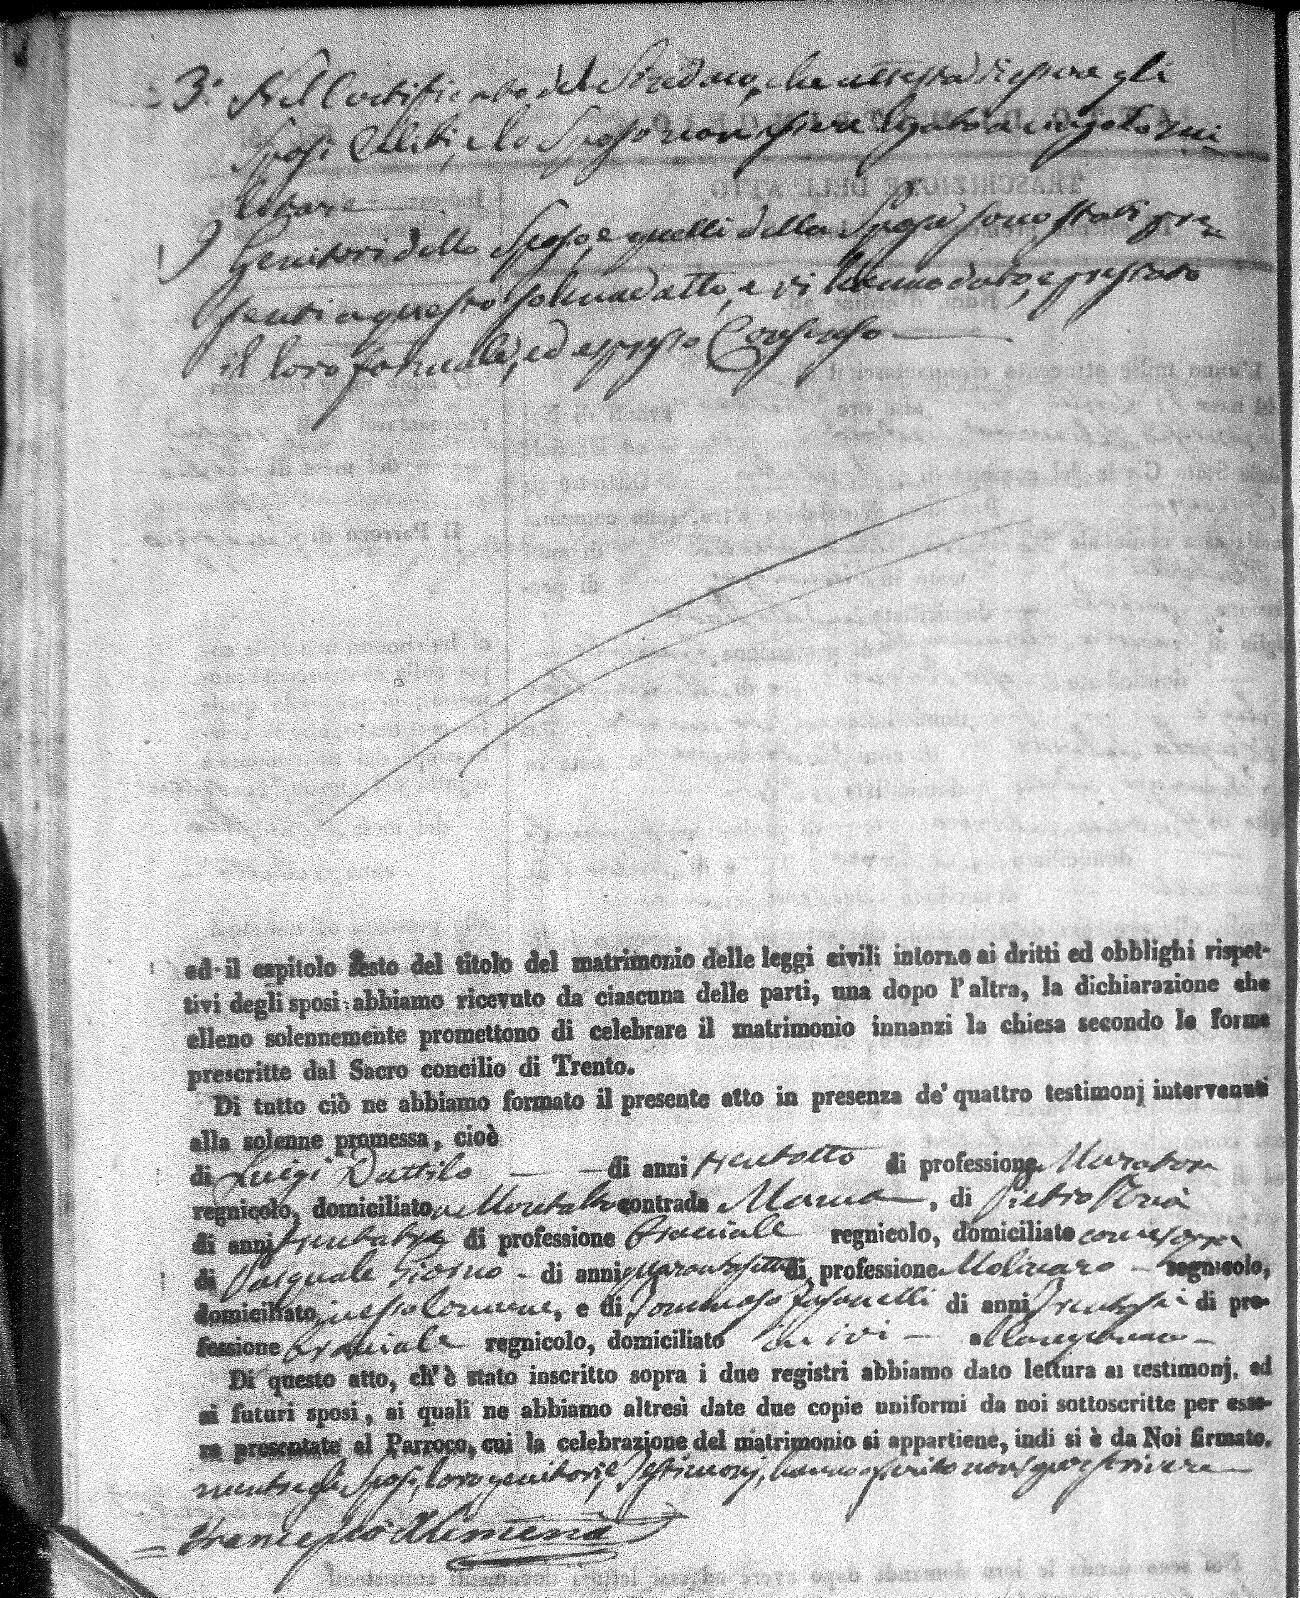 3.° Nel Certificato del Sindaco, che attesta di essere gli
Sposi Celibi, e lo Sposo non essere legato a congedo mi
litare
I Genitori dello Sposo, e quelli della Sposa sono stati pre
senti a questo solenne atto, e vi hanno dato, e prestato
il loro formale, ed espresso Consenso
ed il capitolo sesto del titolo del matrimonio delle leggi civili intorno ai dritti ed obblighi rispet-
tivi degli sposi: abbiamo ricevuto da ciascuna delle parti, una dopo l'altra, la dichiarazione che
elleno solennemente promettono di celebrare il matrimonio innanzi la chiesa secondo le forme
prescritte dal Sacro concilio di Trento.
Di tutto ciò ne abbiamo formato il presente atto in presenza de' quattro testimonj intervenuti
alla solenne promessa, cioè
di Luigi Dattilo di anni trentotto di professione Muratore
regnicolo, domiciliato a Montalto contrada , di Pietro
di anni professione Bracciale regnicolo, domiciliato come sopra
di Pasquale di anni quarantasette di professione Molinaro regnicolo,
domiciliato in esso Comune, e di Tommaso Fasanelli di anni di pro-
fessione bracciale regnicolo, domiciliato ivi
Di questo atto, ch'è stato inscritto sopra i due registri abbiamo dato lettura ai testimonj, ed
ai futuri sposi, ai quali ne abbiamo altresì date due copie uniformi da noi sottoscritte per esse-
re presentate al Parroco, cui la celebrazione del matrimonio si appartiene, indi si è da Noi firmato,
mentre gli Sposi, loro genitori e testimonj, hanno asserito non saper scrivere
Francesco Alimena